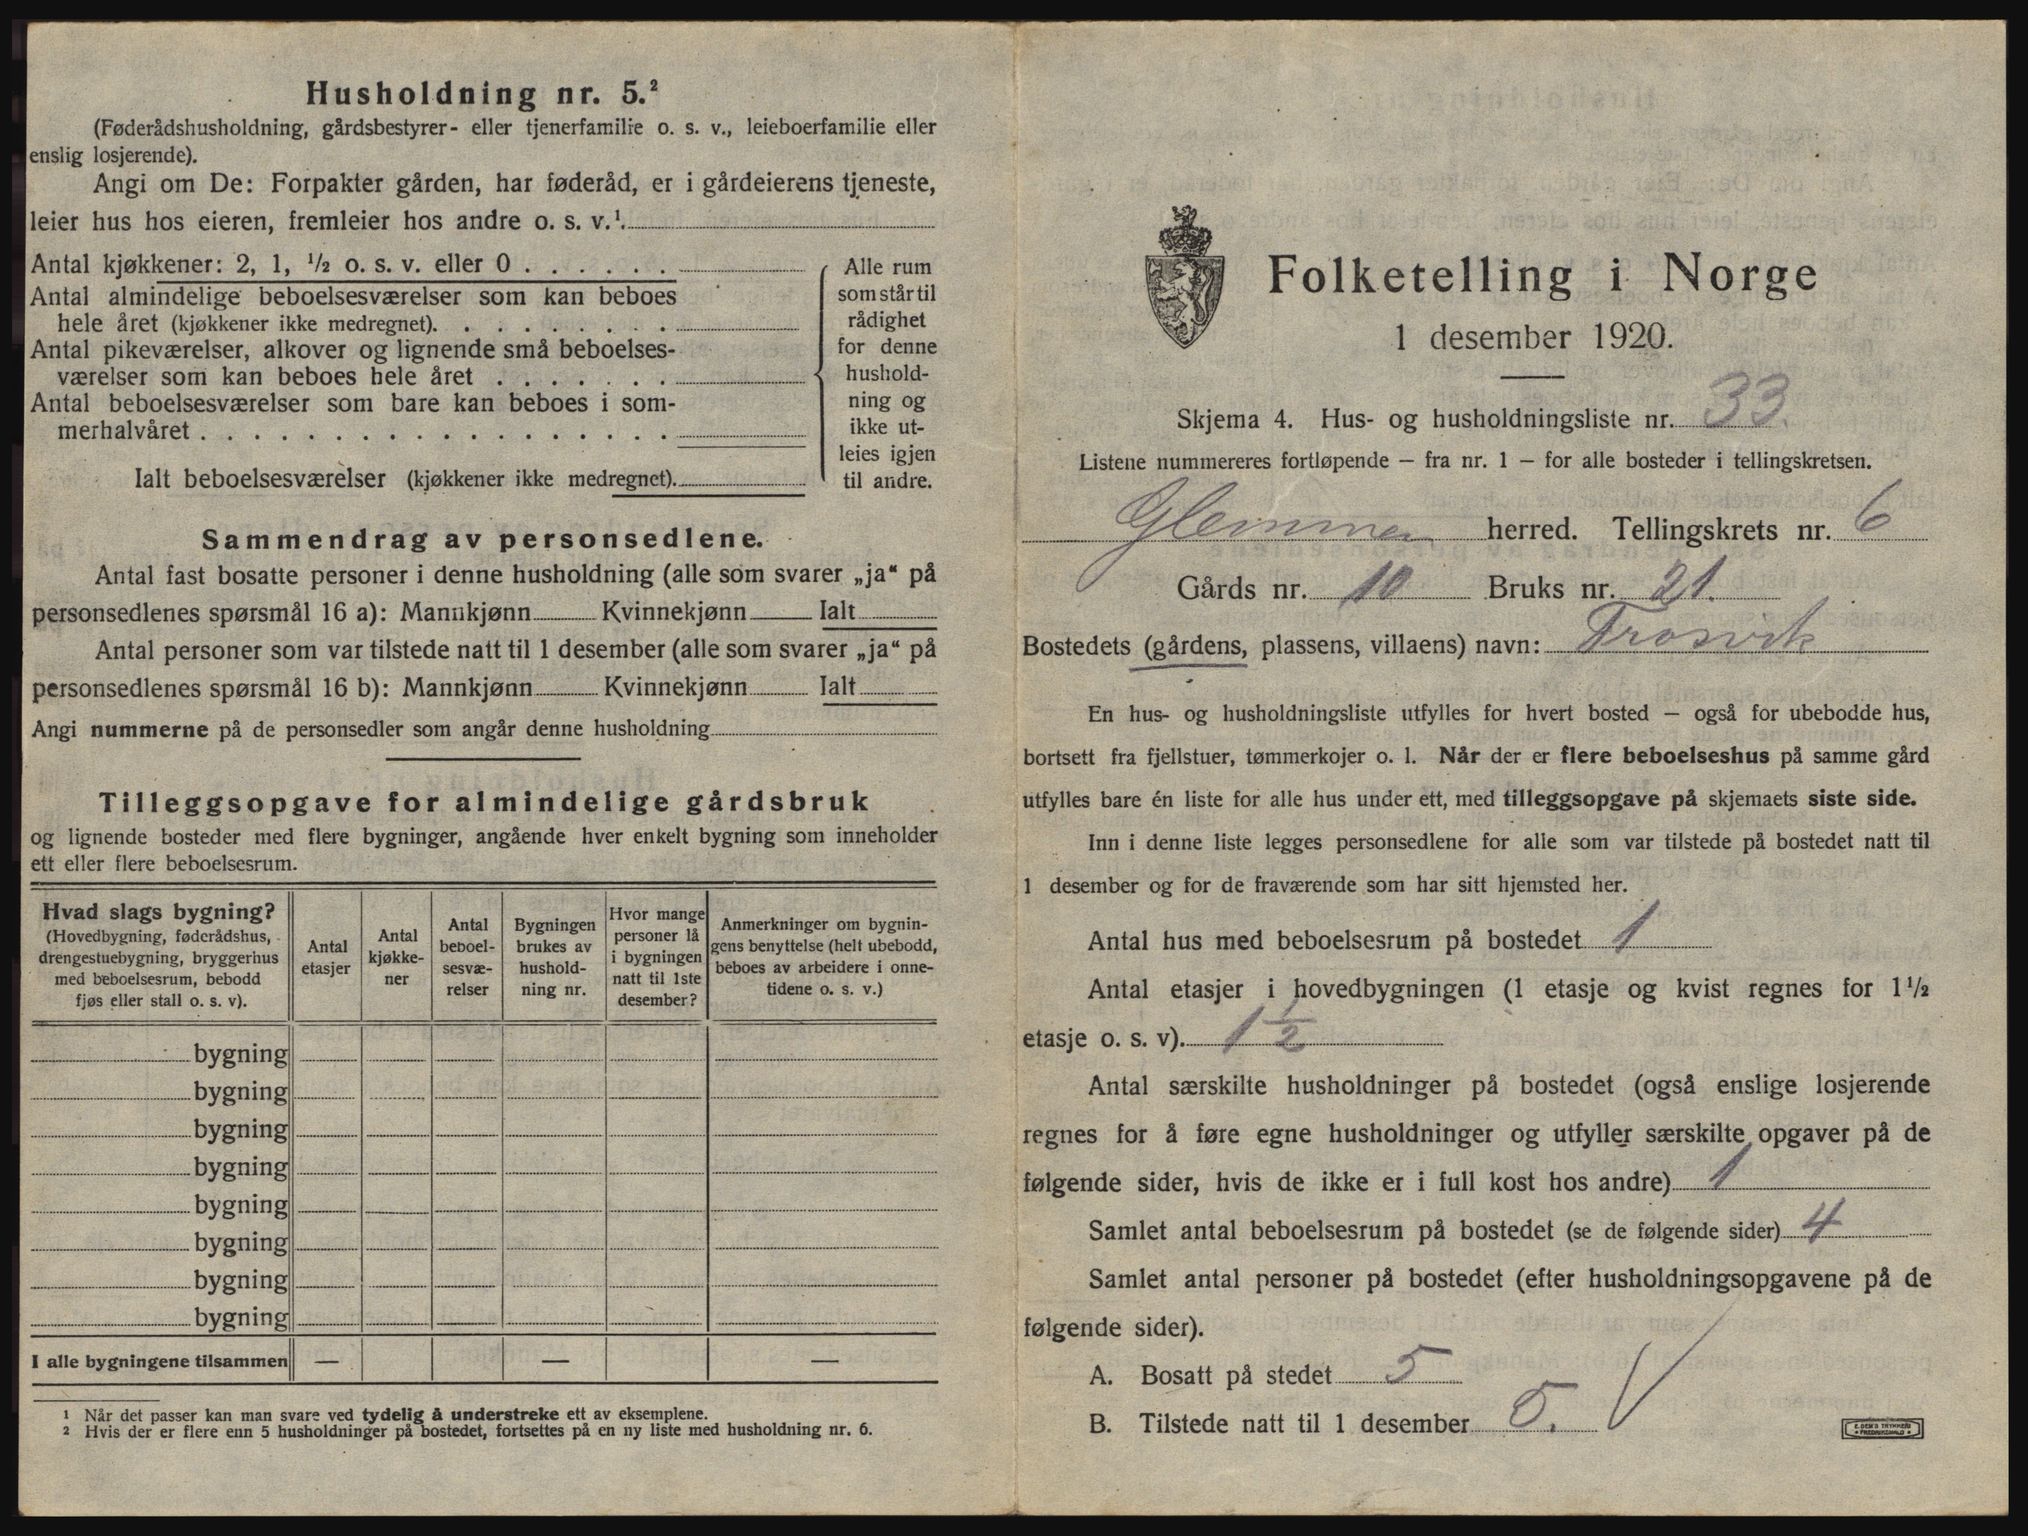 Husholdning nr. 5.²
(Føderådshusholdning, gårdsbestyrer- eller tjenerfamilie o. s. v., leieboerfamilie eller
enslig losjerende).
Angi om De: Forpakter gården, har føderåd, er i gårdeierens tjeneste,
leier hus hos eieren, fremleier hos andre o. s. v.¹.
Antal kjøkkener: 2, 1, ½ o. s. v. eller 0 . . . . . .
Antal almindelige beboelsesværelser som kan beboes
hele året (kjøkkener ikke medregnet). . . . . . . . .
Antal pikeværelser, alkover og lignende små beboelses-
værelser som kan beboes hele året . . . . . . .
Antal beboelsesværelser som bare kan beboes i som-
merhalvåret . . . . . . . . . . . . . . . . .
Ialt beboelsesværelser (kjøkkener ikke medregnet).
Alle rum
som står til
rådighet
for denne
hushold-
ning og
ikke ut-
leies igjen
til andre.
Sammendrag av personsedlene.
Antal fast bosatte personer i denne husholdning (alle som svarer „ja“ på
personsedlenes spørsmål 16 a): Mannkjønn Kvinnekjønn Ialt
Antal personer som var tilstede natt til 1 desember (alle som svarer „ja“ på
personsedlenes spørsmål 16 b): Mannkjønn Kvinnekjønn Ialt
Angi nummerne på de personsedler som angår denne husholdning
Tilleggsopgave for almindelige gårdsbruk
og lignende bosteder med flere bygninger, angående hver enkelt bygning som inneholder
ett eller flere beboelsesrum.
Hvad slags bygning?
(Hovedbygning, føderådshus,
drengestuebygning, bryggerhus
med beboelsesrum, bebodd
fjøs eller stall o. s. v).
Antal
etasjer
Antal
kjøkke-
ner
Antal
beboel-
sesvæ-
relser
Bygningen
brukes av
hushold-
ning nr.
Hvor mange
personer lå
i bygningen
natt til 1ste
desember?
Anmerkninger om bygnin-
gens benyttelse (helt ubebodd,
beboes av arbeidere i onne-
tidene o. s. v.)
bygning
bygning
bygning
bygning
bygning
bygning
bygning
bygning
I alle bygningene tilsammen — — —
¹ Når det passer kan man svare ved tydelig å understreke ett av eksemplene.
² Hvis der er flere enn 5 husholdninger på bostedet, fortsettes på en ny liste med husholdning nr. 6.
Folketelling i Norge
1 desember 1920.
Skjema 4. Hus- og husholdningsliste nr. 33.
Listene nummereres fortløpende — fra nr. 1 — for alle bosteder i tellingskretsen.
Glemmen herred. Tellingskrets nr. 6
Gårds nr. 10 Bruks nr. 21.
Bostedets (gårdens, plassens, villaens) navn: Trosvik
En hus- og husholdningsliste utfylles for hvert bosted — også for ubebodde hus,
bortsett fra fjellstuer, tømmerkojer o. l. Når der er flere beboelseshus på samme gård
utfylles bare én liste for alle hus under ett, med tilleggsopgave på skjemaets siste side.
Inn i denne liste legges personsedlene for alle som var tilstede på bostedet natt til
1 desember og for de fraværende som har sitt hjemsted her.
Antal hus med beboelsesrum på bostedet 1
Antal etasjer i hovedbygningen (1 etasje og kvist regnes for 1½
etasje o. s. v). 1½
Antal særskilte husholdninger på bostedet (også enslige losjerende
regnes for å føre egne husholdninger og utfyller særskilte opgaver på de
følgende sider, hvis de ikke er i full kost hos andre) 1
Samlet antal beboelsesrum på bostedet (se de følgende sider) 4
Samlet antal personer på bostedet (efter husholdningsopgavene på de
følgende sider).
A. Bosatt på stedet 5
B. Tilstede natt til 1 desember 5. V